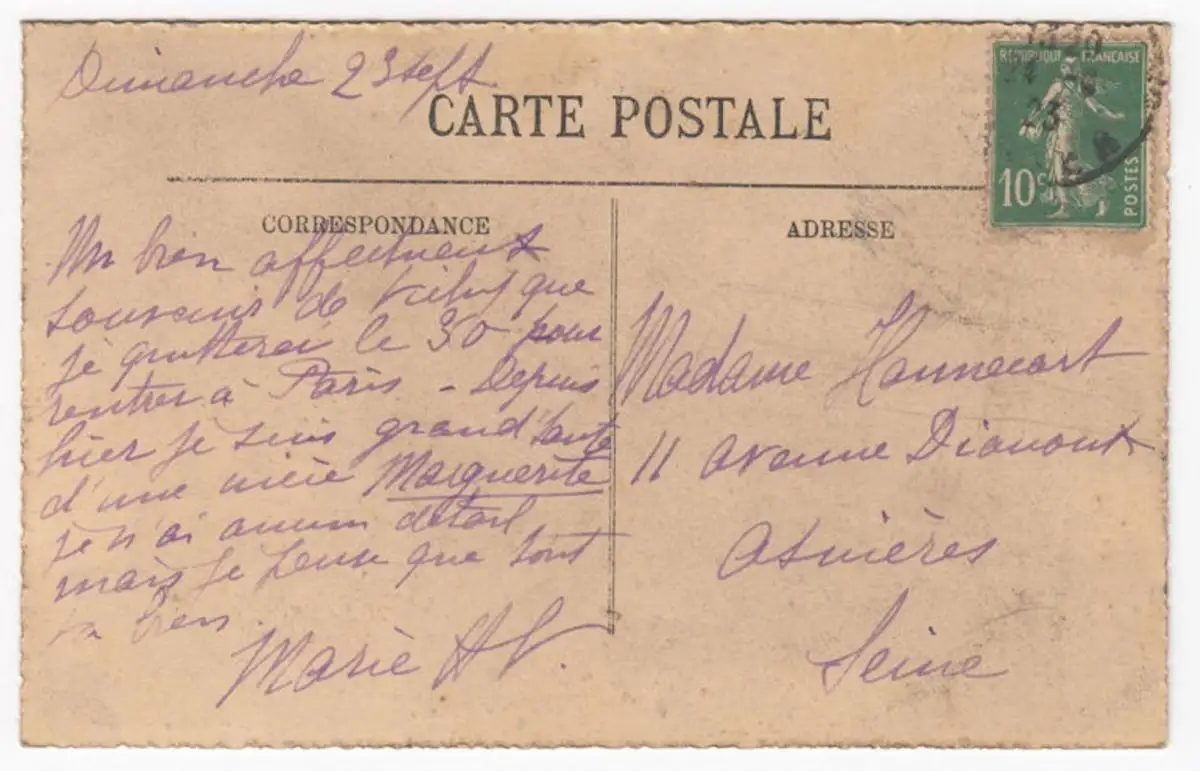 Dimanche 23 sept
CARTE POSTALE
RÉPUBLIQUE FRANÇAISE
10c
POSTES
23
CORRESPONDANCE
Un bien affectueux
souvenir de Vichy que
je quitterai le 30 pour
rentrer à Paris - Depuis
hier je suis grand'tante
d'une nièce Marguerite
je n'ai aucun détail
mais je pense que tout
va bien.
Marie
ADRESSE
Madame Hannecart
11 avenue
Asnières
Seine